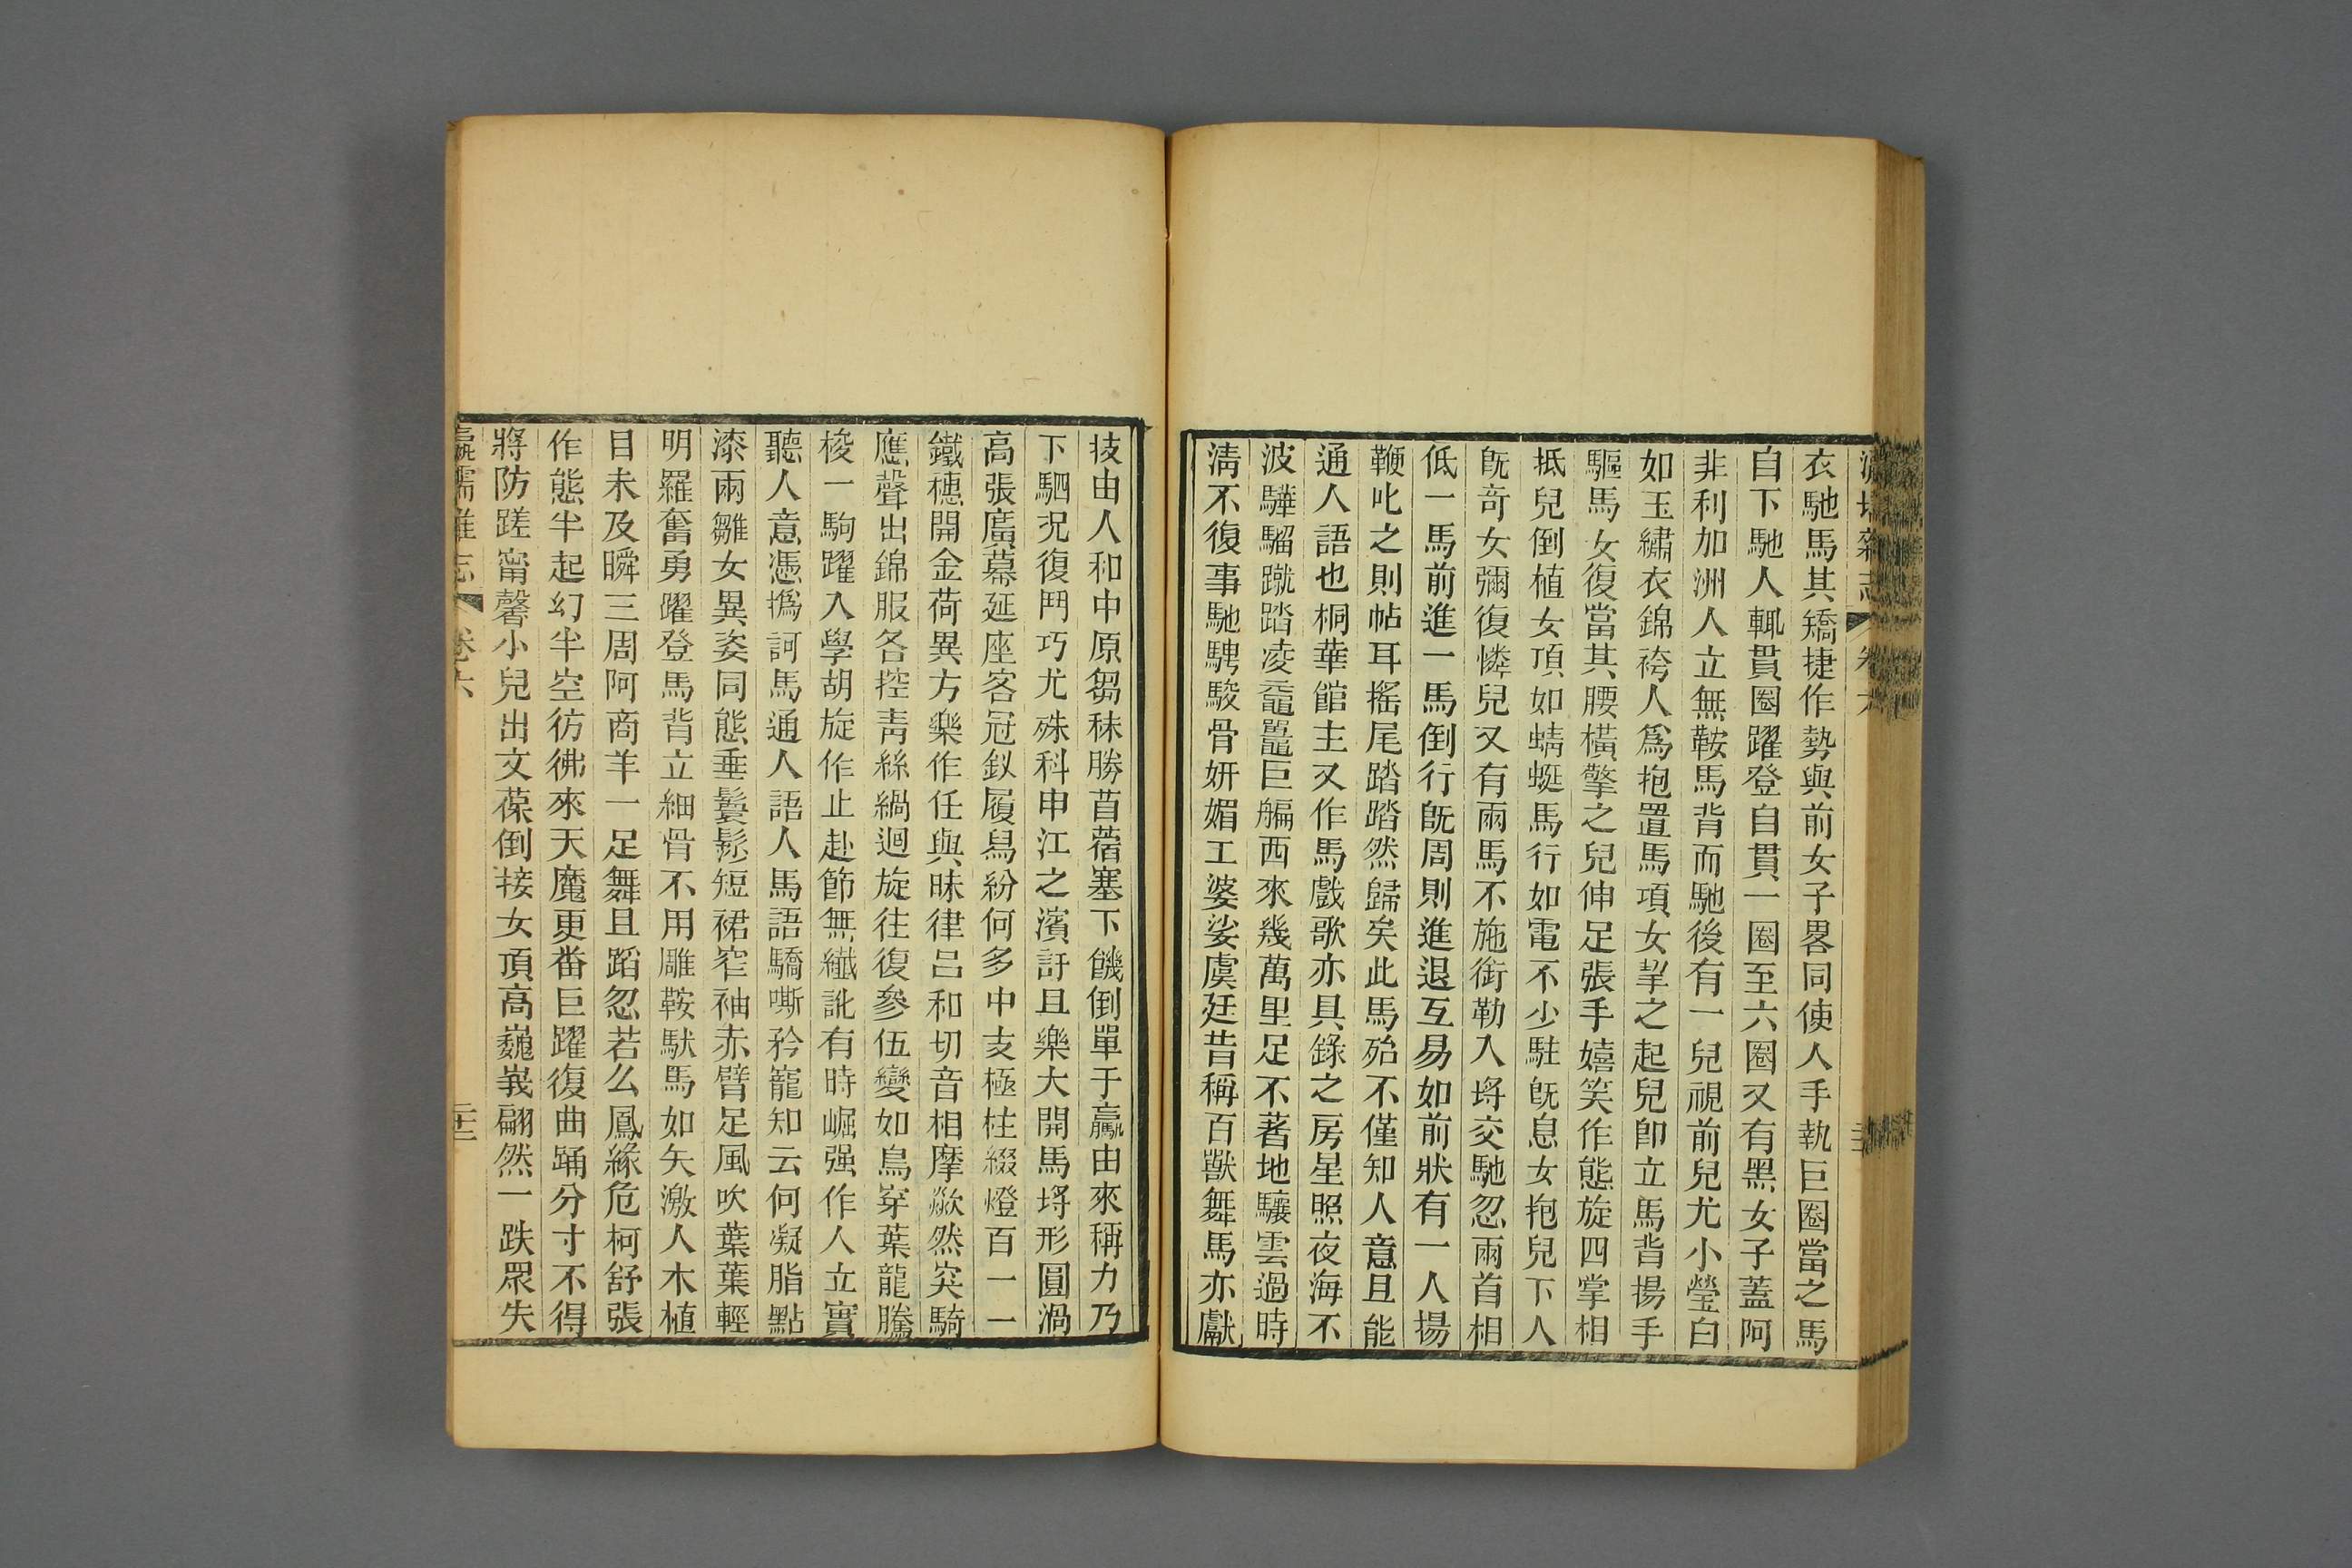 衣馳馬其矯捷作勢與前女子畧同使人手執巨圈當之馬
自下馳人輒貫圈躍登自貫一圈至六圈又有黑女子蓋阿
非利加洲人立無鞍馬背而馳後有一兒視前兒尤小瑩白
如玉繡衣錦袴人爲抱置馬項女挈之起兒卽立馬背揚手
驅馬女復當其腰橫擎之兒伸足張手嬉笑作態旋四掌相
抵兒倒植女頂如蜻蜓馬行如電不少駐旣息女抱兒下人
旣奇女彌復憐兒又有兩馬不施銜勒入埒交馳忽兩首相
低一馬前進一馬倒行旣周則進退互易如前狀有一人揚
鞭叱之則帖耳搖尾踏踏然歸矣此馬殆不僅知人意且能
通人語也桐華館主又作馬戲歌亦具錄之房星照夜海不
波驊騮蹴踏凌黿鼉巨艑西來幾萬里足不著地驤雲過時
淸不復事馳騁駿骨妍媚工婆娑虞廷昔稱百獸舞馬亦獻
技由人和中原芻秣勝苜蓿塞下饑倒單于驘由來稱力乃
下駟況復鬥巧尤殊科申江之濱訏且樂大開馬埒形圓渦
高張廣幕延座客冠釵履舄紛何多中支極柱綴燈百一一
鐵穗開金荷異方樂作任與昧律呂和切音相摩歘然突騎
應聲出錦服各控靑絲緺迴旋往復參伍變如鳥穿葉龍騰
梭一駒躍入學胡旋作止赴節無纖訛有時崛强作人立實
聽人意憑撝訶馬通人語人馬語驕嘶矜寵知云何凝脂點
漆兩雛女異姿同態垂鬟髿短裙窄袖赤臂足風吹葉葉輕
明羅奮勇躍登馬背立細骨不用雕鞍馱馬如矢激人木植
目未及瞬三周阿商羊一足舞且蹈忽若么鳳緣危柯舒張
作態半起幻半空彷彿來天魔更番巨躍復曲踊分寸不得
將防蹉甯馨小兒出文葆倒接女頂高巍峩翩然一跌眾失
瀛壖雜志 卷六